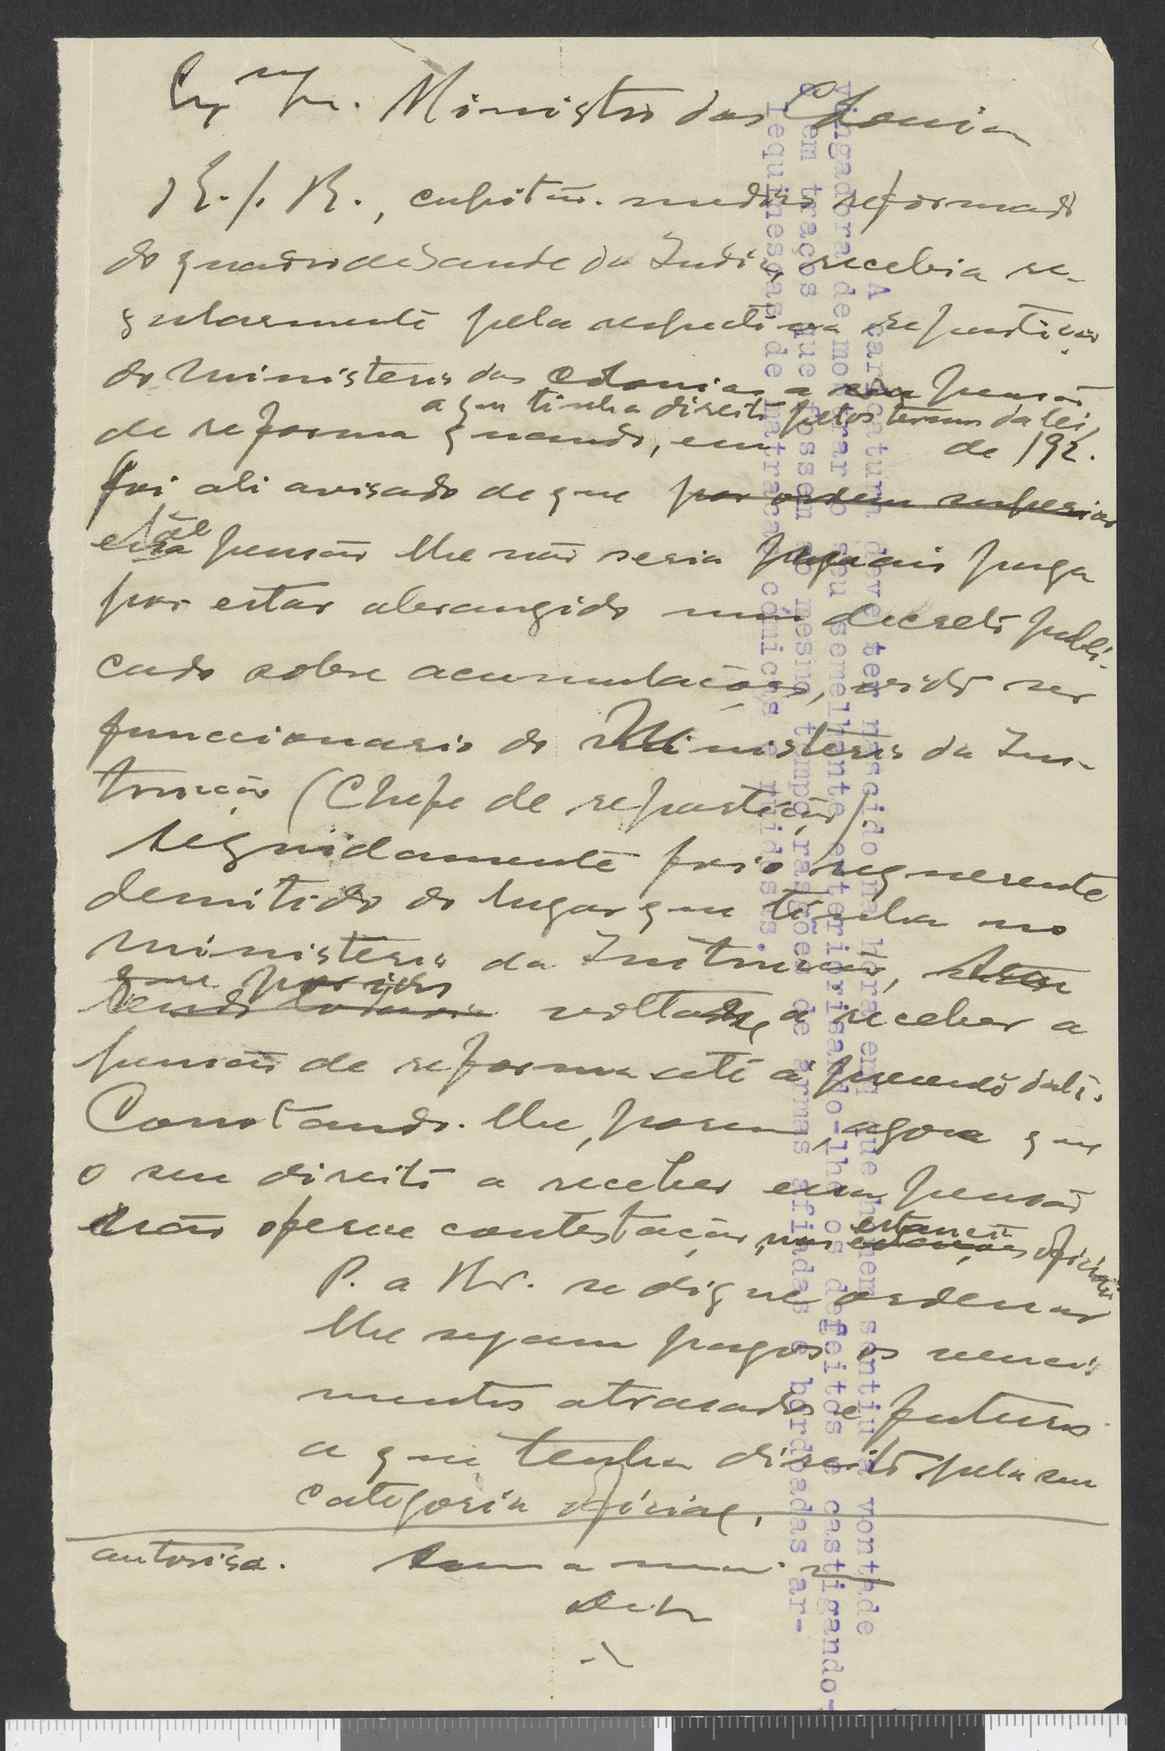 Exmo Sr. Ministro das Colonias
R. J. R., capitão medico reformado
do quadro de Saude da India, recebia re-
gularmente pela respectiva repartição
do Ministerio das Colonias a sua pensão
a que tinha direito pelos termos da lei,
de reforma quando, em de 192.
foi ali avisado de que por ordem superior
tal
essa pensão lhe não seria mais paga
por estar abrangido num decreto publi-
cado sobre acumulações, visto ser
funccionario do Ministerio da Ins-
trução (Chefe de repartição).
Seguidamente foi o requerente
demitido do lugar que tinha no
Ministerio da Instrução, sem
que por isso
tendo todavia voltasse a receber a
pensão de reforma até à presente data.
Constando-lhe, porem, agora que
o seu direito a receber essa pensão
não oferece contestação, nas estancias oficiais
P. a V. se digne ordenar
lhe sejam pagos os venci-
mentos atrasados e futuros
a que tenha direito pela sua
categoria oficial.
autorisa.
A caricatura deve ter nascido na hora em que o homem sentiu a vontade
vingadora de mostrar o seu semelhante exteriorisando-lhe os defeitos e castigando-
o em traços que fossem ao mesmo tempo rasgões de armas afiadas e bordoadas ar-
lequinescas de matracas cómicas e ruidosas.